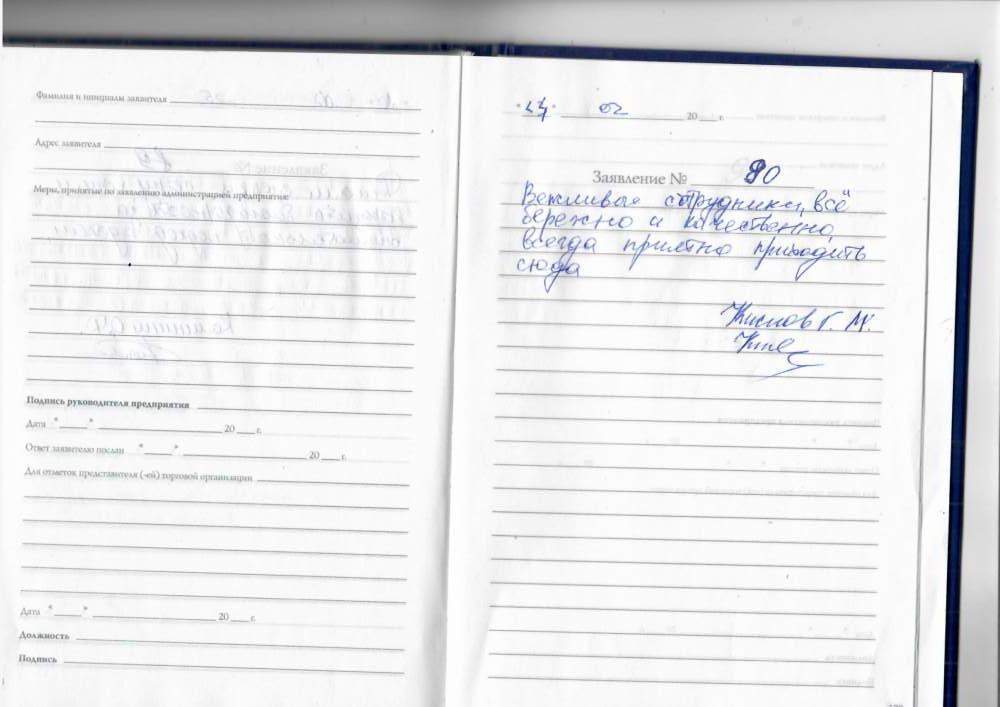 Фамилия и инициалы заявителя
Адрес заявителя
Меры, принятые по заявлению администрацией предприятия:
Подпись руководителя предприятия
Дата "____" ____ 20 ___ г.
Ответ заявителю послан "____" ____ 20 ___ г.
Для отметок представителя (-ей) торговой организации
Дата "____" ____ 20 ___ г.
Должность
Подпись
02 20 ___ г.
Заявление № 90
Вежливые сотрудники, всё
бережно и качественно,
всегда приятно приходить
сюда
Г. М.